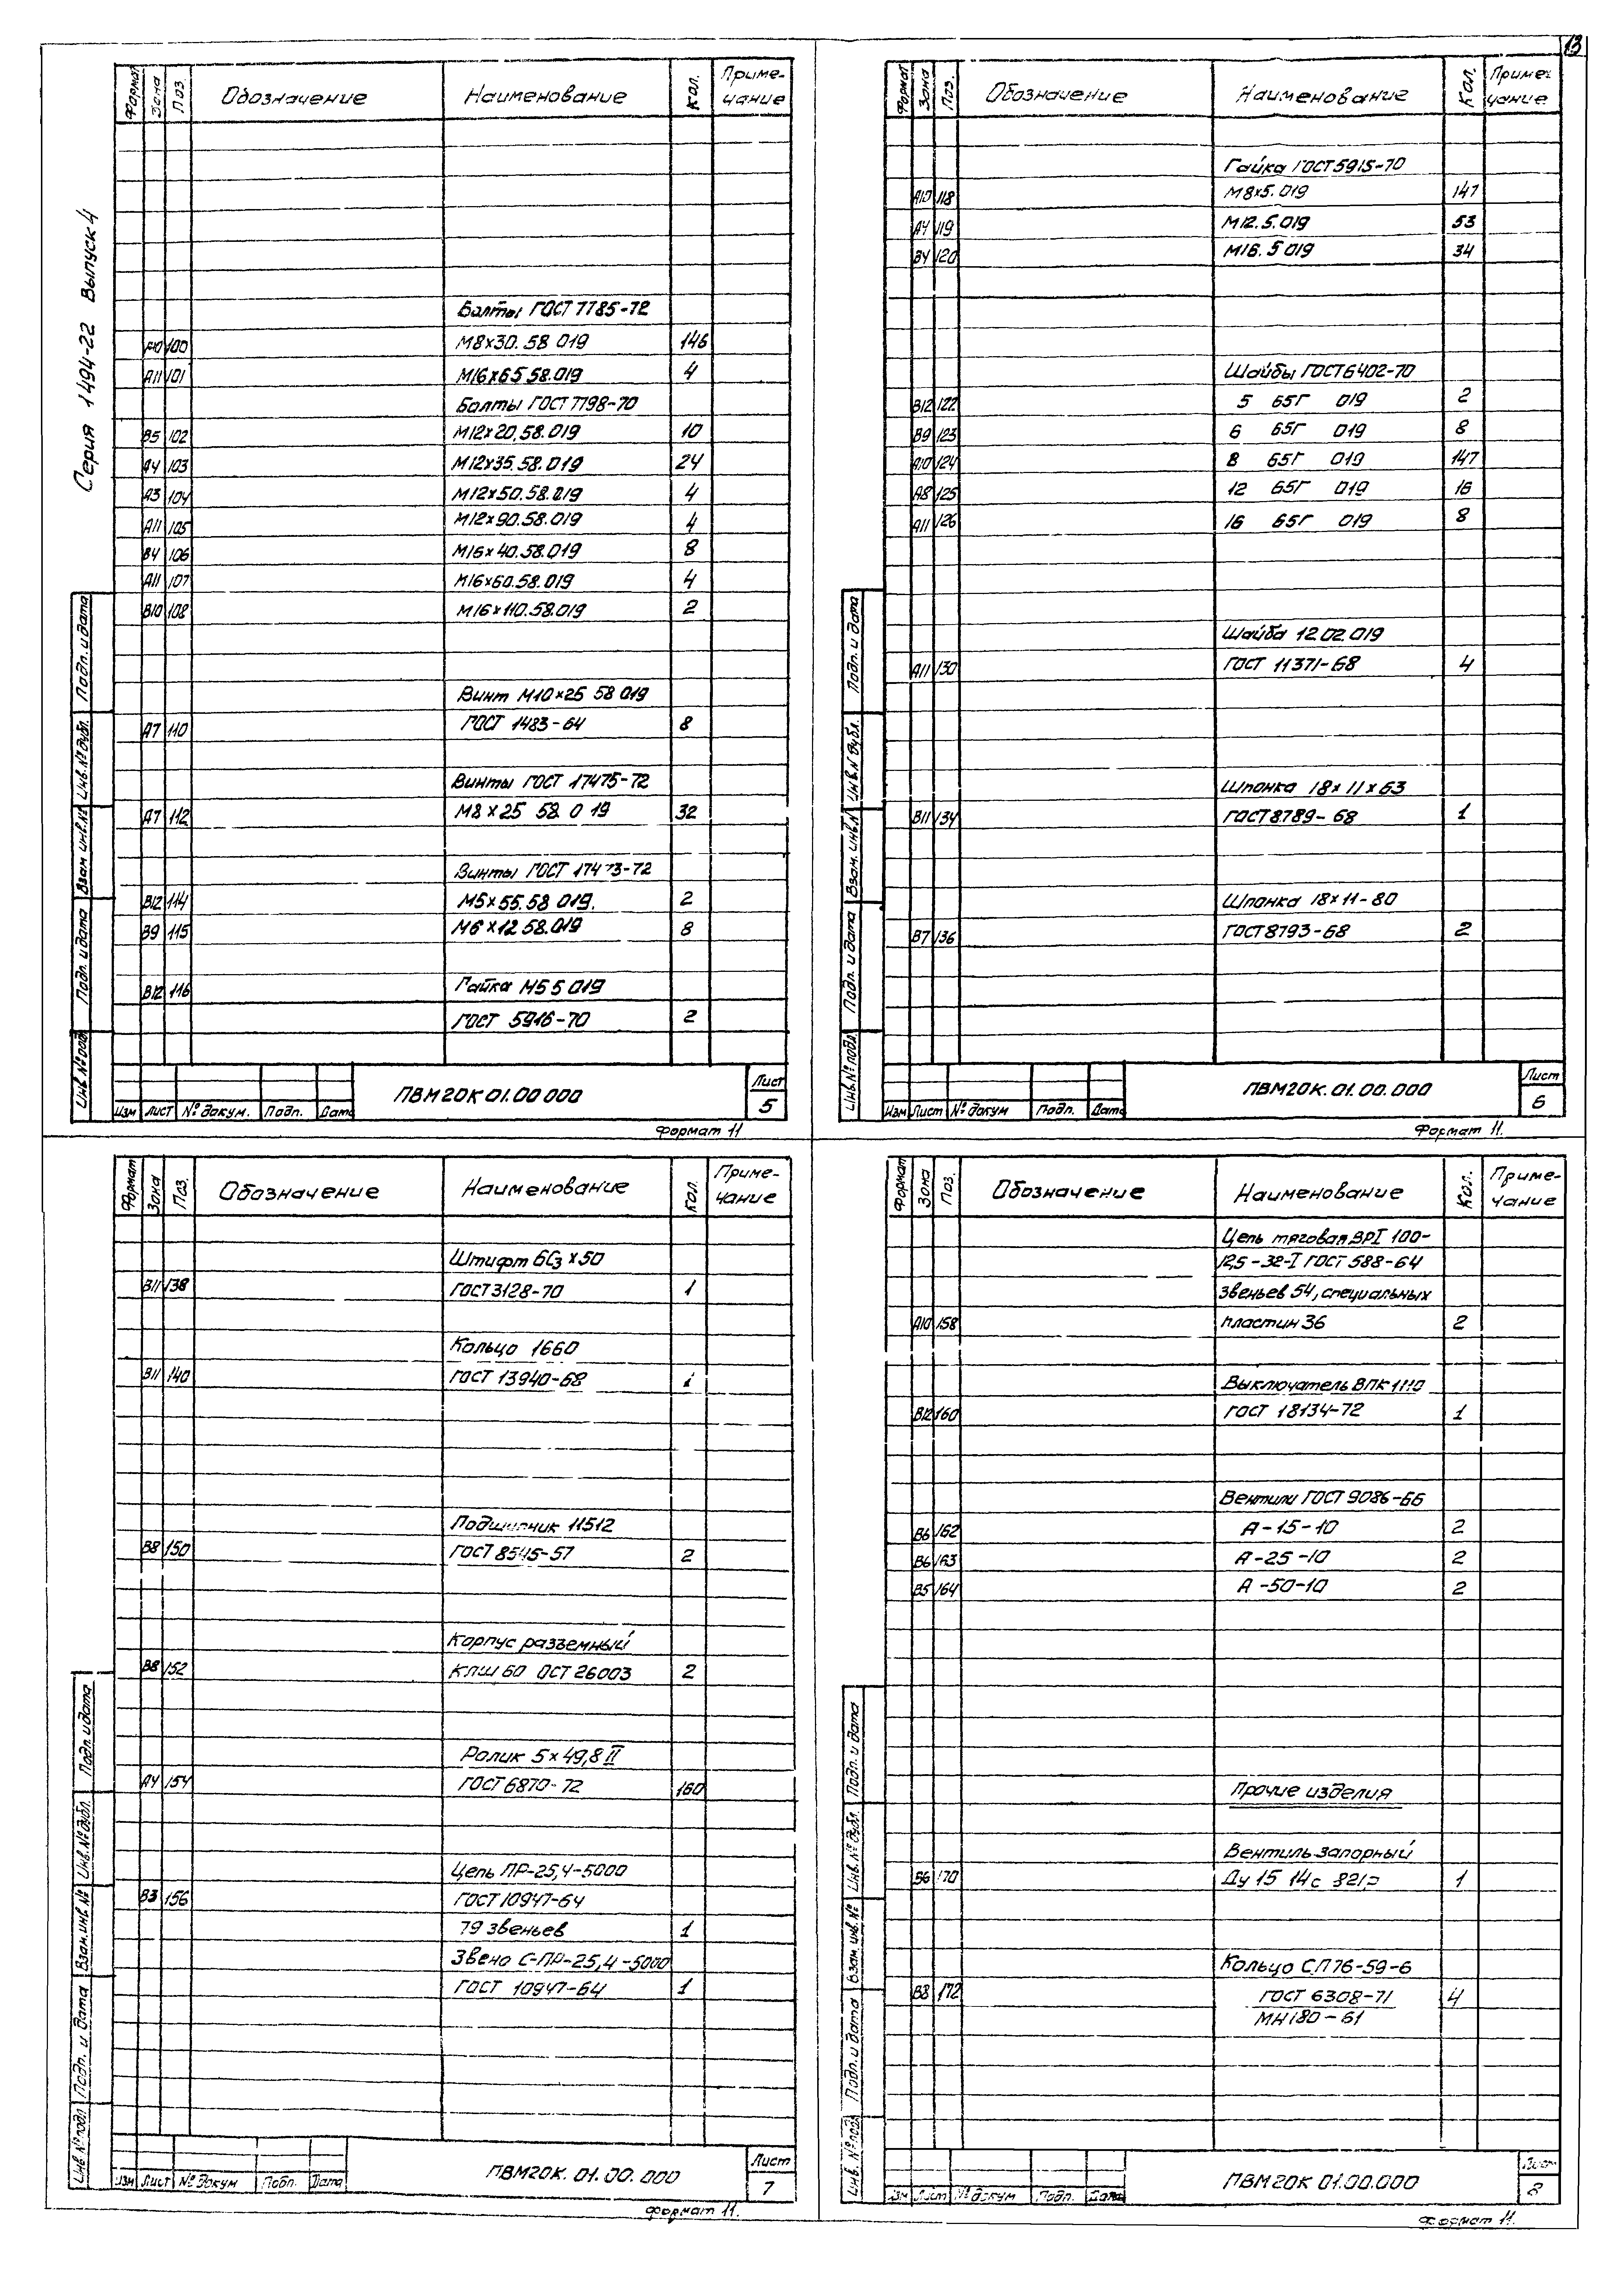 13
Серия 1494-22 Выпуск 4
Формат Зона Поз. Обозначение Наименование Кол. Приме-
чание
Болты ГОСТ 7785-72
А10 100 М8х30.58 019 146
А11 101 М16х65 58.019 4
Болты ГОСТ 7798-70
В5 102 М12х20.58.019 10
А4 103 М12х35.58.019 24
А3 104 М12х50.58.019 4
А11 105 М12х90.58.019 4
В4 106 М16х40.58.019 8
А11 107 М16х60.58.019 4
В10 108 М16х110.58.019 2
Винт М10х25 58 019
А7 110 ГОСТ 1483-64 8
Винты ГОСТ 17475-72
А7 112 М8х25 58. 0 19 32
Винты ГОСТ 17473-72
В12 114 М5х55.58 019. 2
В9 115 М6х12 58.019 8
В12 116 Гайка М5 5 019
ГОСТ 5916-70 2
Подп. и дата
Инв.№ дубл.
Взам инв.№
Подп и дата
Инв №подл
Изм Лист № докум. Подп. Дата
ПВМ20К 01.00 000
Лист
5
Формат 11
Формат Зона Поз. Обозначение Наименование Кол. Приме-
чание
Гайка ГОСТ 5915-70
А10 118 М8х5.019 147
А4 119 М12.5.019 53
В4 120 М16.5 019 34
Шайбы ГОСТ 6402-70
В12 122 5 65Г 019 2
В9 123 6 65Г 019 8
А10 124 8 65Г 019 147
А8 125 12 65Г 019 16
А11 126 16 65Г 019 8
Шайба 12 02.019
А11 130 ГОСТ 11371-68 4
Шпонка 18х11х63
В11 134 ГОСТ 8789-68 1
Шпонка 18х11-80
В7 136 ГОСТ 8793-68 2
Подп. и дата
Инв.№ дубл.
Взам. инв.№
Подп. и дата
Инв.№ подл.
Изм Лист № докум Подп. Дата
ПВМ20К.01.00.000
Лист
6
Формат 11.
Формат Зона Поз. Обозначение Наименование Кол. Приме-
чание
Штифт 6С3х50
В11 138 ГОСТ 3128-70 1
Кольцо 1660
В11 140 ГОСТ 13940-68 1
Подшипник 11512
В8 150 ГОСТ 8545-57 2
Корпус разъемный
В8 152 КПШ 60 ОСТ 26003 2
Ролик 5х49,8 II
А4 154 ГОСТ 6870-72 160
Цепь ПР-25,4-5000
В3 156 ГОСТ 10947-64
79 звеньев 1
Звено С-ПР-25,4-5000
ГОСТ 10947-64 1
Подп. и дата
Инв.№ дубл.
Взам.инв №
Подп. и дата
Инв №подл
Изм Лист № докум Подп. Дата
ПВМ20К. 01.00.000
Лист
7
Формат 11.
Формат Зона Поз. Обозначение Наименование Кол. Приме-
чание
Цепь тяговая ВРI 100-
12,5-32-I ГОСТ 588-64
звеньев 54, специальных
А10 158 пластин 36 2
Выключатель ВПК 1110
В12 160 ГОСТ 18134-72 1
Вентили ГОСТ 9086-66
В6 162 А-15-10 2
В6 163 А-25-10 2
В5 164 А-50-10 2
Прочие изделия
Вентиль запорный
В6 170 Ду 15 14с 821р 1
Кольцо СП 76-59-6
В8 172 ГОСТ 6308-71 4
МН 180-61
Подп. и дата
Инв.№ дубл.
Взам.инв.№
Подп. и дата
Инв.№подл
Изм Лист № докум Подп. Дата
ПВМ20К 01.00.000
Лист
8
Формат 11.